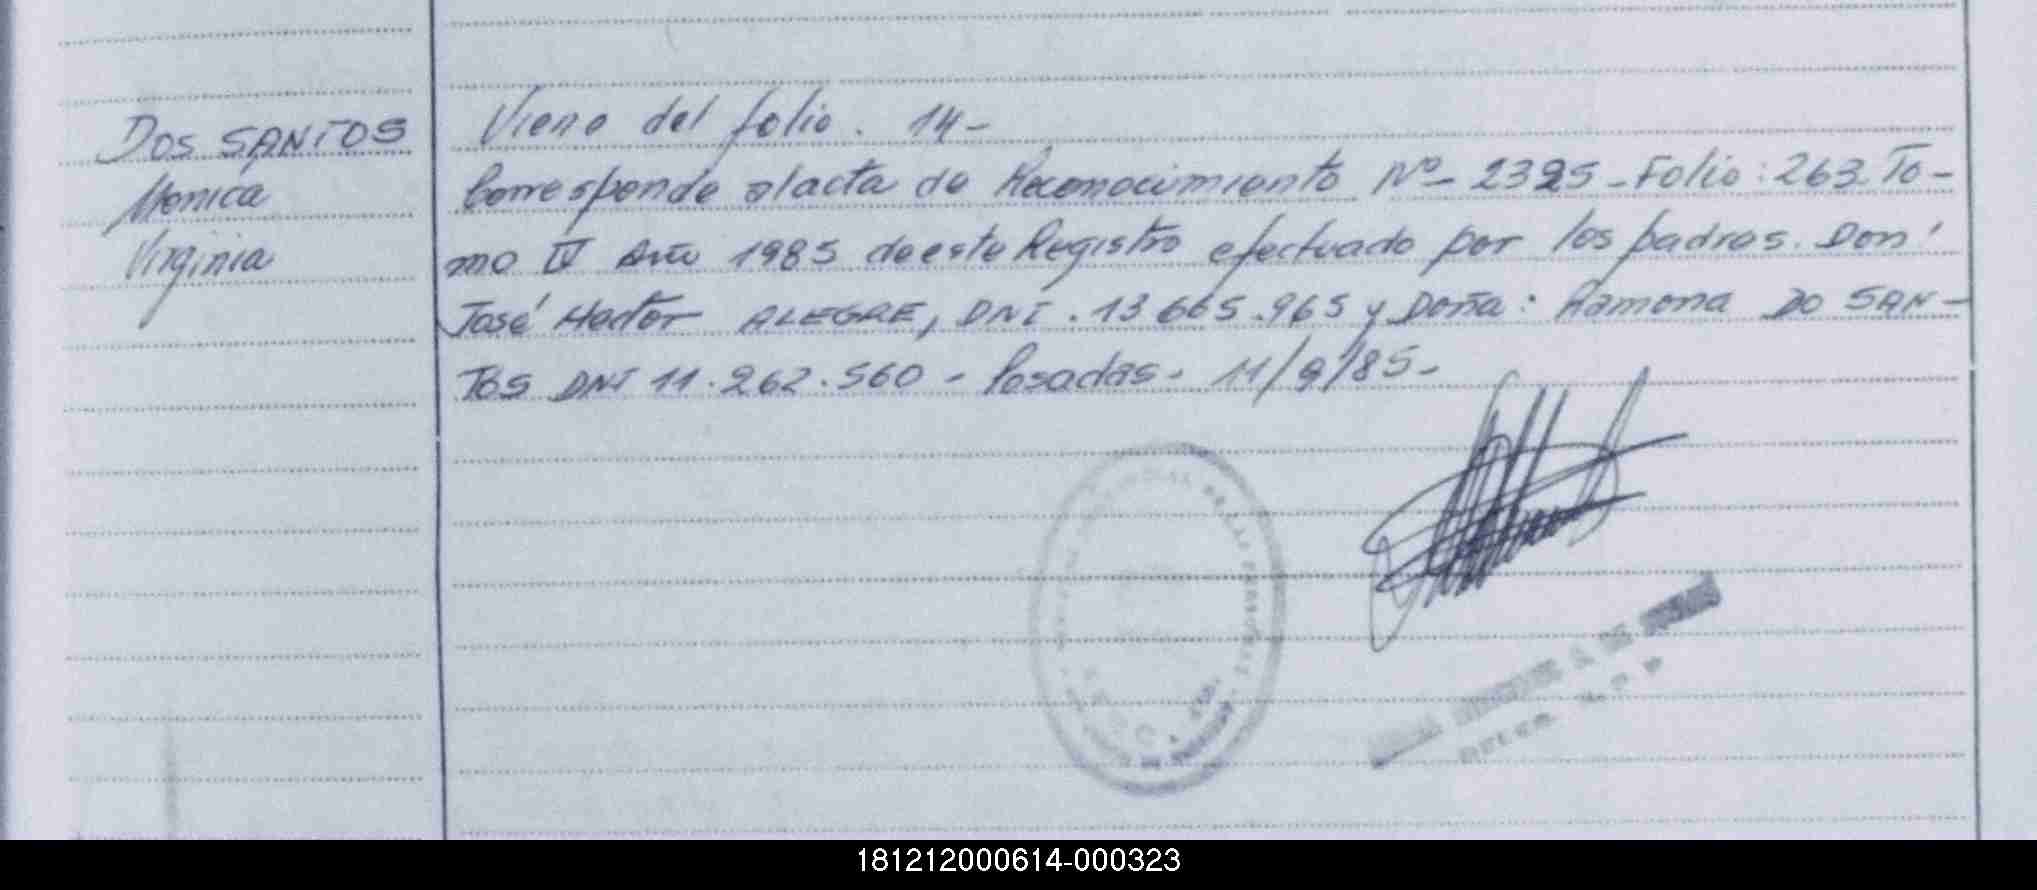 DOS SANTOS
Monica
Virginia
Viene del folio. 14-
Corresponde al acta de Reconocimiento Nº- 2395 - Folio: 263. To-
mo IV Año 1985 de este Registro efectuado por los padres. Don:
José Hector ALEGRE, DNI. 13.665.965 y Doña: Ramona DO SAN-
TOS DNI 11.262.560 - Posadas. 11/9/85-
181212000614-000323